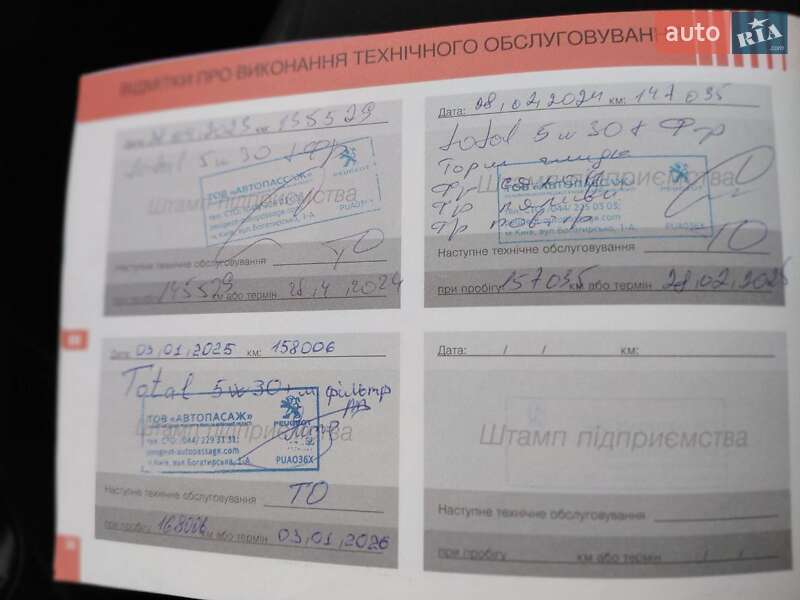 auto RIA.com
ВІДМІТКИ ПРО ВИКОНАННЯ ТЕХНІЧНОГО ОБСЛУГОВУВАН
Дата: 04,2023 км: 135529
total 5w30 + Фр
ТОВ «АВТОПАССАЖ»
PEUGEOT
Штамп підприємства
м. Київ, вул. Богатирська, 1-А
PUA036X
Наступне технічне обслуговування ТО
при пробігу 145529 км або термін 28,4,2024
Дата: 28,02,2024 км: 147035
total 5w30 + Фр
Торм
Фр салону
ТОВ «АВТОПАССАЖ»
PEUGEOT
Фр палива
Штамп підприємства
тел. СТО: (044) 225 03 03;
Фр повітр
м. Київ, вул. Богатирська, 1-А
PUA036X
Наступне технічне обслуговування ТО
при пробігу 157035 км або термін 28,02,2025
Дата: 03,01,2025 км: 158006
Total 5w30 + м фільтр
ТОВ «АВТОПАСАЖ»
PEUGEOT
Штамп підприємства
тел. СТО: (044) 229 31 31;
peugeot-autopassage.com
м. Київ, вул. Богатирська, 1-А
PUA036X
Наступне технічне обслуговування ТО
при пробігу 168006 км або термін 03,01,2026
Дата: / / км:
Штамп підприємства
Наступне технічне обслуговування
при пробігу км або термін / /